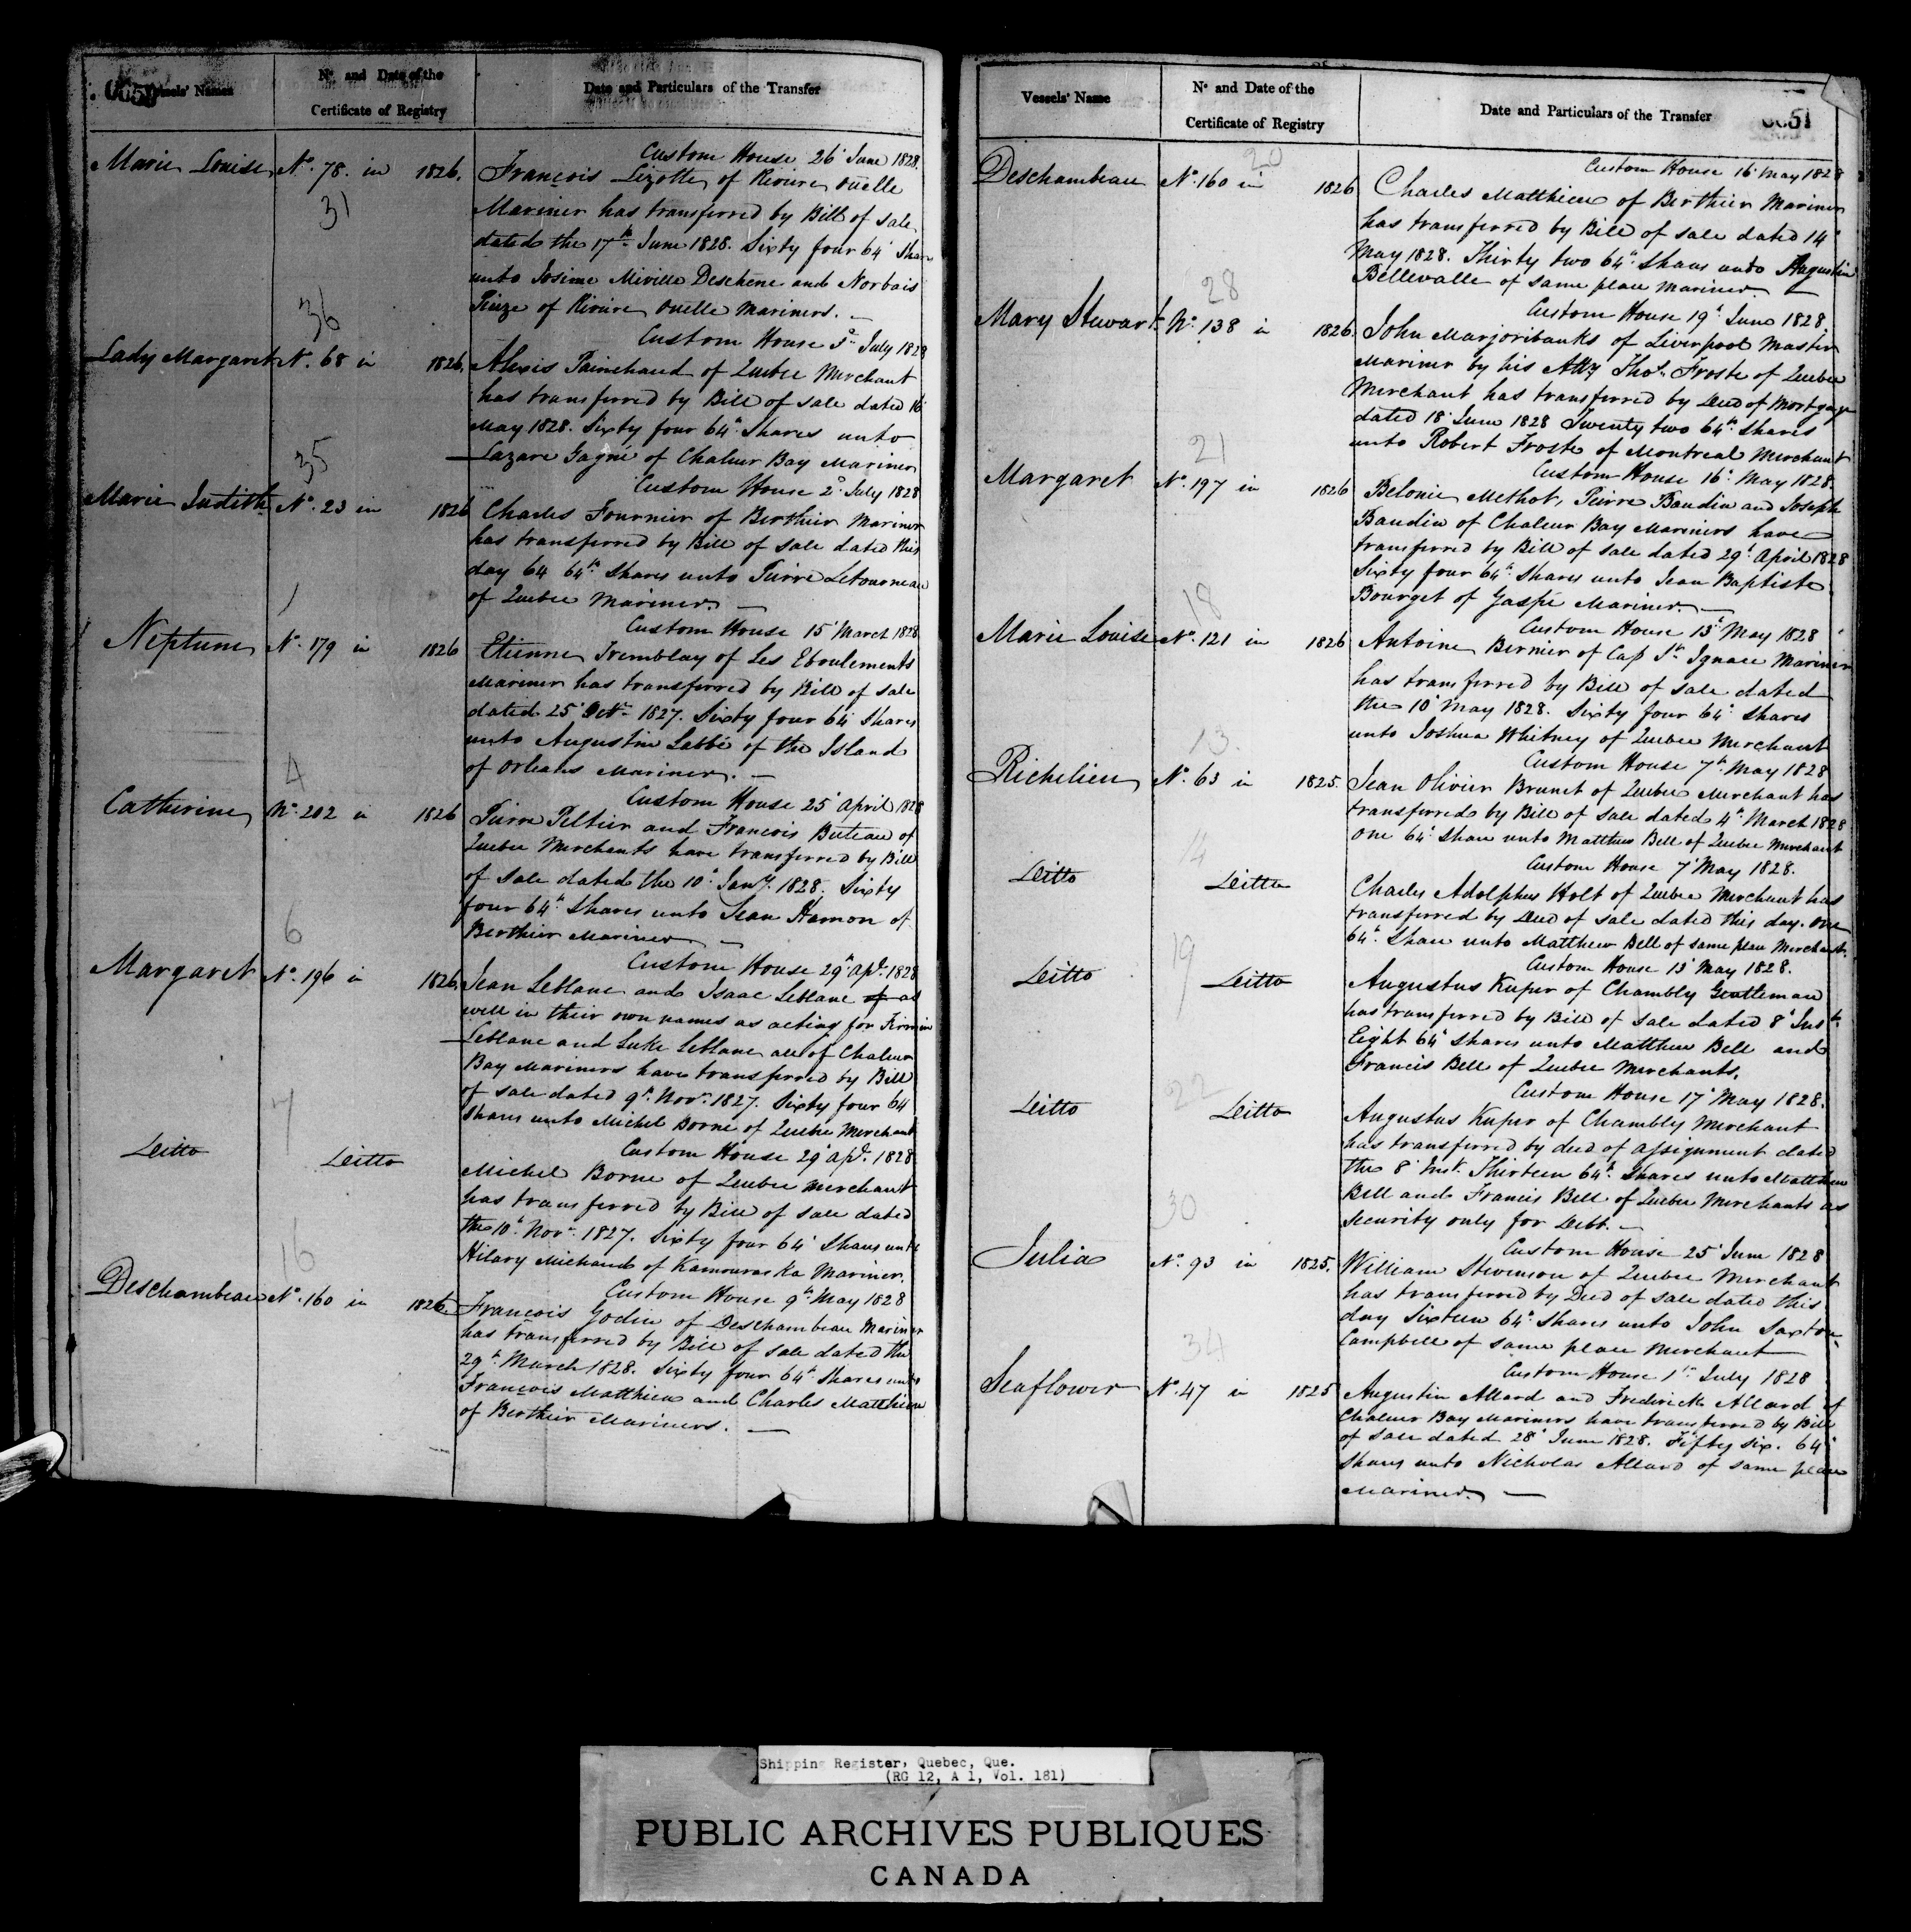 0050
Vessels' Names
No. and Date of the
Certificate of Registry
Date and Particulars of the Transfer
Custom House 26 June 1828.
Marie Louise No. 78. in 1826. François Lizotte of Riviere Ouelle
31
Mariner has transferred by Bill of sale
dated the 17th June 1828. Sixty four 64 Shares
unto Josime Miville Deschene and Norbais
Pinze of Riviere Ouelle Mariners. —
36
Custom House 3d July 1828
Lady Margaret No. 68 in 1826. Alexis Painchaud of Quebec Merchant
has transferred by Bill of sale dated 16
May 1828. Sixty four 64th Shares unto
Lazare Gagné of Chaleur Bay Mariner
35
Custom House 2d July 1828
Marie Judith No. 23 in 1826 Charles Fournier of Berthier Mariner
has transferred by Bill of sale dated this
day 64 64th Shares unto Pierre Letourneau
of Quebec Mariner. —
1
Custom House 15 March 1828
Neptune No. 179 in 1826 Etienne Tremblay of Les Eboulements
Mariner has transferred by Bill of sale
dated 25 Octr. 1827. Sixty four 64 Shares
unto Augustin Labbé of the Island
of Orleans Mariner. —
4
Custom House 25 April 1828
Catherine No. 202 in 1826 Pierre Peltier and Francois Buteau of
Quebec Merchants have transferred by Bill
of sale dated the 10th Jany. 1828. Sixty
four 64th Shares unto Jean Hamon of
Berthier Mariner —
6
Custom House 29th Apl. 1828
Margaret No. 196 in 1826. Jean Leblanc and Isaac Leblanc of as
well in their own names as acting for Firmin
Leblanc and Luke Leblanc all of Chaleur
Bay Mariners have transferred by Bill
of sale dated 9th Novr. 1827. Sixty four 64
Shares unto Michel Borne of Quebec Merchant
7
Custom House 29 Apl. 1828
Ditto Ditto
Michel Borne of Quebec Merchant
has transferred by Bill of sale dated
the 10th Novr. 1827. Sixty four 64 Shares unto
Hilary Michaud of Kamouraska Mariner.
16
Custom House 9th May 1828
Deschambeau No. 160 in 1826. Francois Godin of Deschambeau Mariner
has transferred by Bill of sale dated the
29th March 1828. Sixty four 64th Shares unto
François Matthieu and Charles Matthieu
of Berthier Mariners. —
Vessels' Name
No. and Date of the
Certificate of Registry
Date and Particulars of the Transfer
51
20
Custom House 16 May 1828
Deschambeau No. 160 in 1826 Charles Matthieu of Berthier Mariner
has transferred by Bill of sale dated 14
May 1828. Thirty two 64th Shares unto Augustin
Bellevalle of same place Mariner. —
28
Custom House 19th June 1828
Mary Stewart No. 138 in 1826. John Marjoribanks of Liverpool Master
Mariner by his Atty Thos. Froste of Quebec
Merchant has transferred by Deed of Mortgage
dated 18 June 1828 Twenty two 64th Shares
unto Robert Froste of Montreal Merchant
21
Custom House 16th May 1828.
Margaret No. 197 in 1826 Belonie Methot, Pierre Baudin and Joseph
Baudin of Chaleur Bay Mariners have
transferred by Bill of sale dated 29th April 1828
Sixty four 64th Shares unto Jean Baptiste
Bourget of Gaspé Mariner —
18
Custom House 13th May 1828
Marie Louise No. 121 in 1826 Antoine Bernier of Cap St. Ignace Mariner
has transferred by Bill of sale dated
the 10 May 1828. Sixty four 64th Shares
unto Joshua Whitney of Quebec Merchant
13.
Custom House 7th May 1828
Richelieu No. 63 in 1825. Jean Olivier Brunet of Quebec Merchant has
transferred by Bill of sale dated 4th March 1828
one 64th Share unto Matthew Bell of Quebec Merchant
14
Custom House 7 May 1828.
Ditto Ditto
Charles Adolphus Holt of Quebec Merchant has
transferred by Deed of sale dated this day. one
64th Share unto Matthew Bell of same place Merchant.
19
Custom House 13 May 1828.
Ditto Ditto
Augustus Kuper of Chambly Gentleman
has transferred by Bill of sale dated 8 Inst.
Eight 64th Shares unto Matthew Bell and
Francis Bell of Quebec Merchants.
22
Custom House 17 May 1828.
Ditto Ditto
Augustus Kuper of Chambly Merchant
has transferred by deed of assignment dated
the 8 Inst. Thirteen 64th Shares unto Matthew
Bell and Francis Bell of Quebec Merchants as
security only for Debt. —
30
Custom House 25 June 1828
Julia No. 93 in 1825. William Stevenson of Quebec Merchant
has transferred by Deed of sale dated this
day Sixteen 64th Shares unto John Saxton
Campbell of same place Merchant
34
Custom House 1st July 1828
Seaflower No. 47 in 1825 Augustin Allard and Frederick Allard of
Chaleur Bay Mariners have transferred by Bill
of sale dated 28 June 1828. Fifty six. 64
Shares unto Nicholas Allard of same place
Mariner. —
Shipping Register, Quebec, Que.
(RG 12, A 1, Vol. 181)
PUBLIC ARCHIVES PUBLIQUES
CANADA